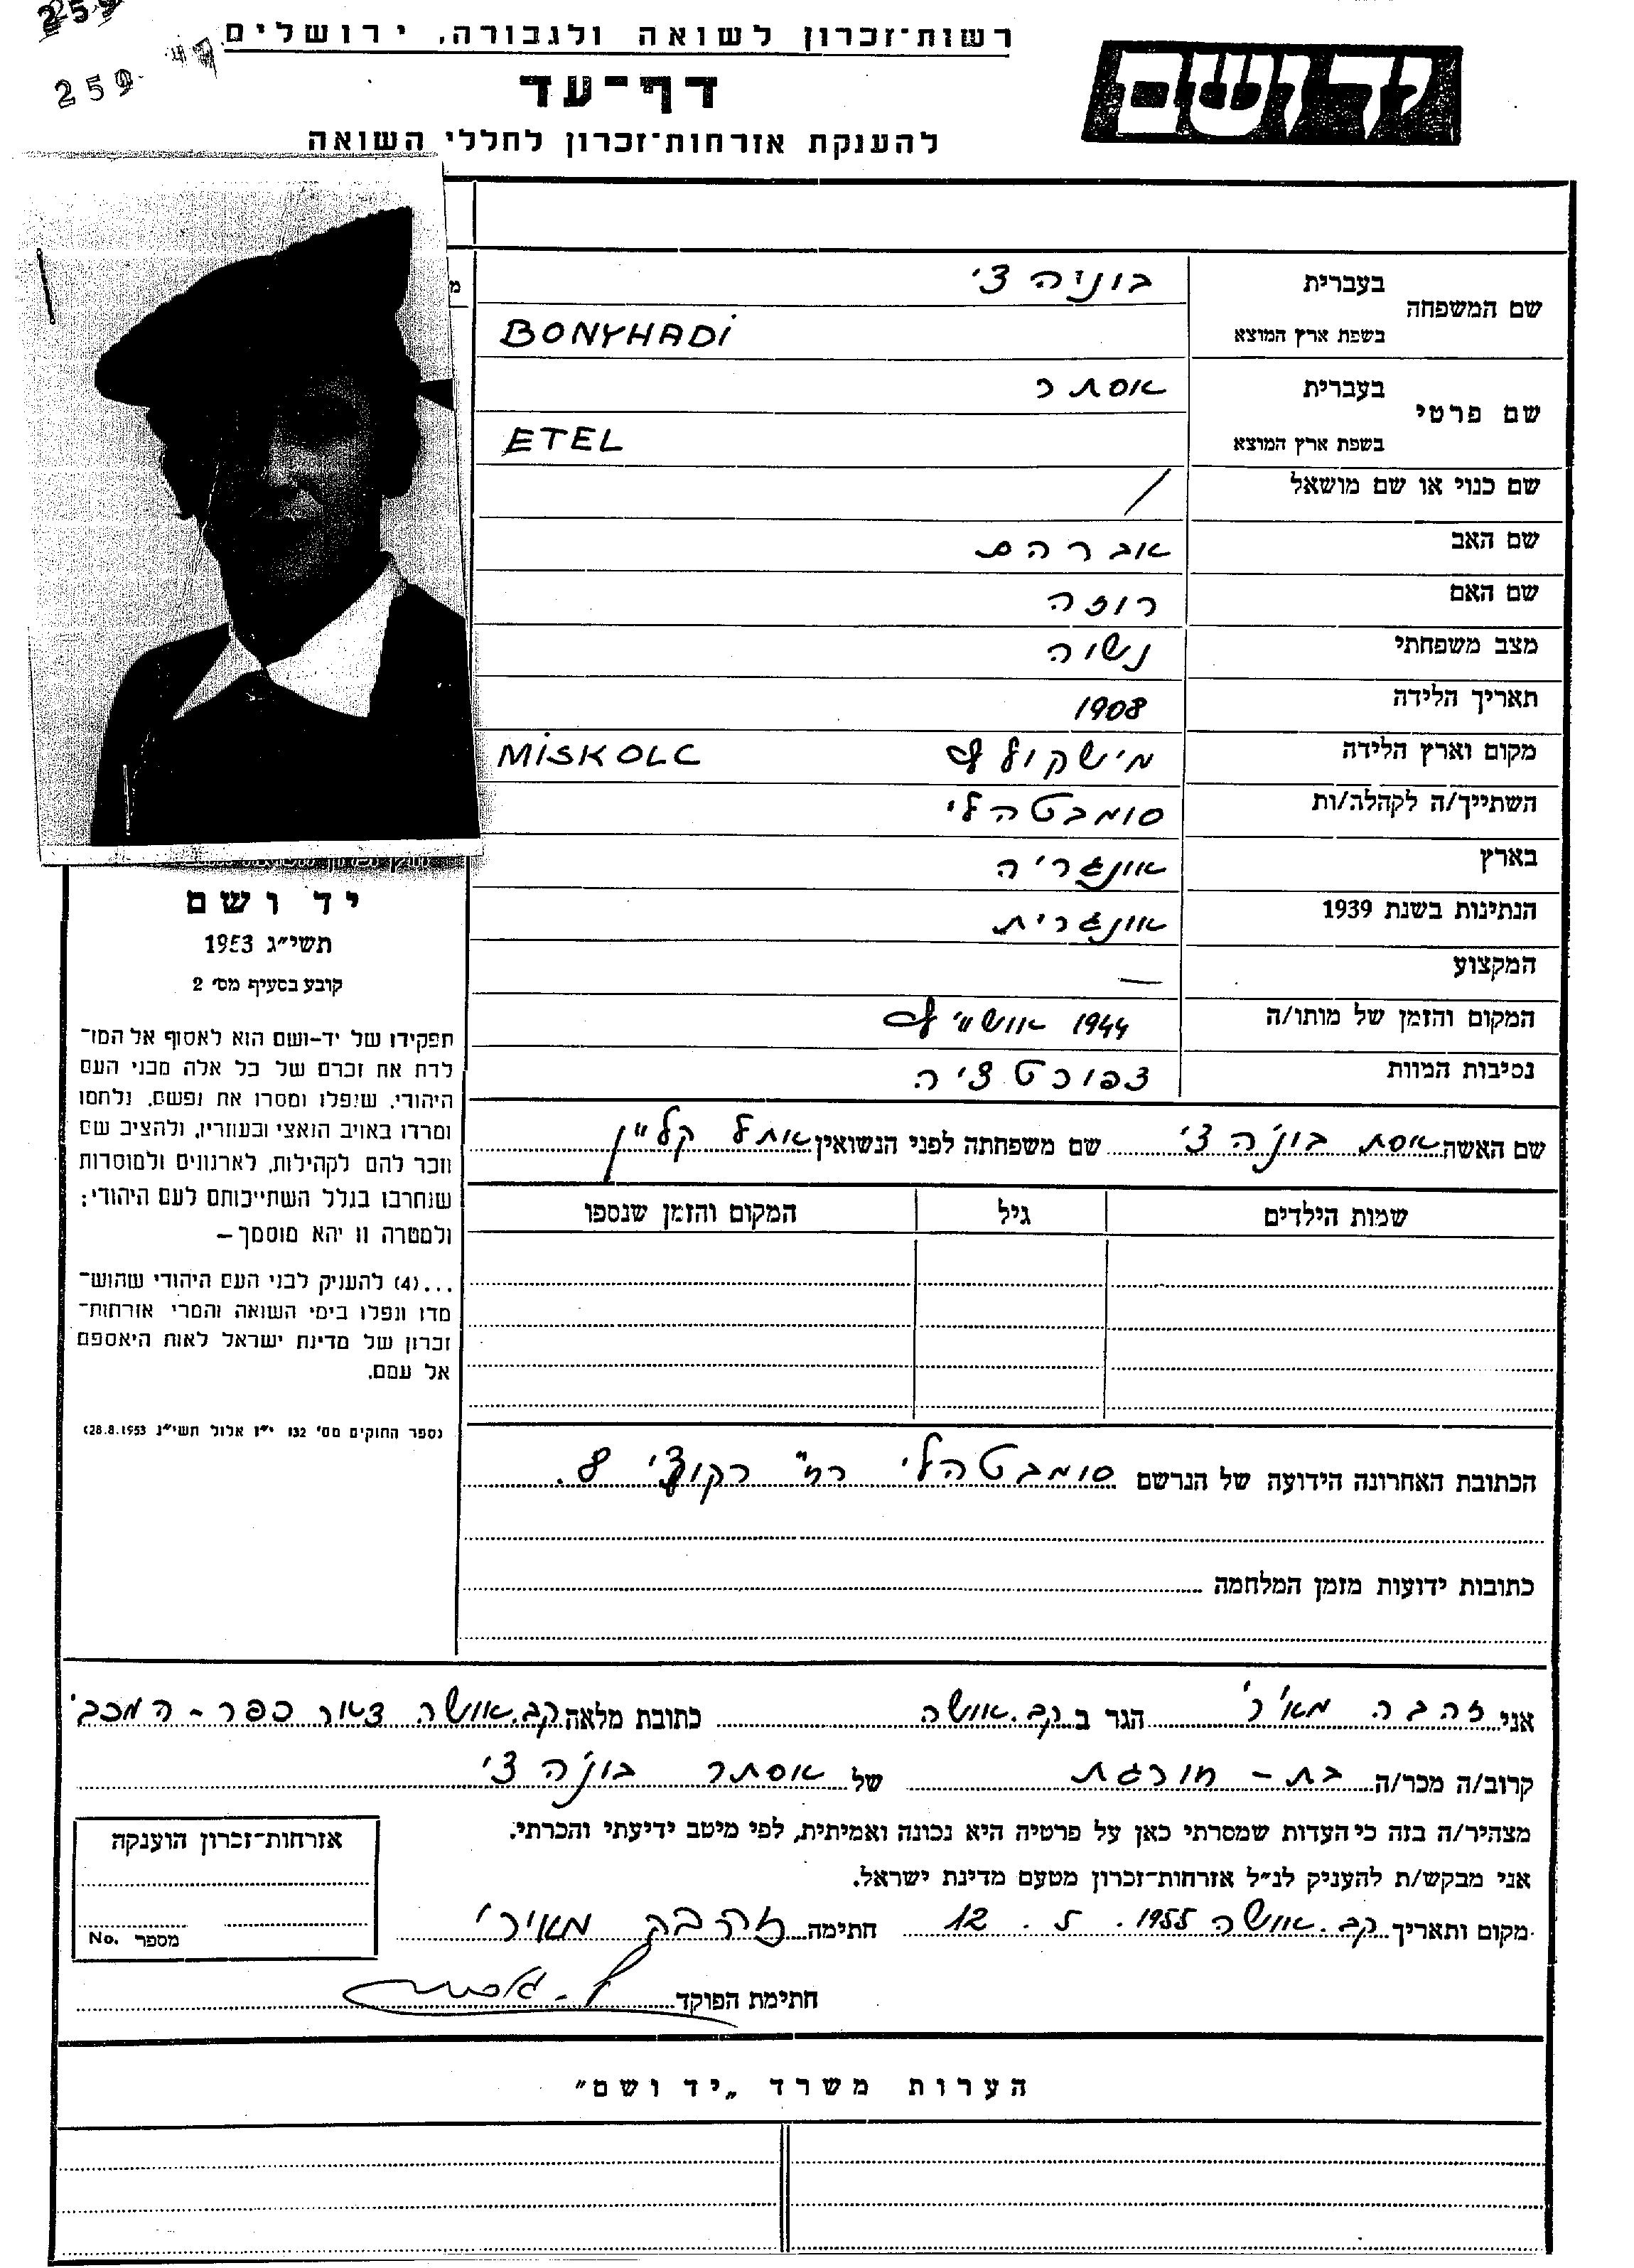 259
259
רשות־זכרון לשואה ולגבורה, ירושלים
יד ושם
דף־עד
להענקת אזרחות־זכרון לחללי השואה
שם המשפחה
בעברית בוניה צ'י
בשפת ארץ המוצא BONYHADI
שם פרטי
בעברית אסתר
בשפת ארץ המוצא ETEL
שם כנוי או שם מושאל /
שם האב אברהם
שם האם רוזה
מצב משפחתי נשוה
תאריך הלידה 1908
מקום וארץ הלידה מישקולץ MISKOLC
השתייך/ה לקהלה/ות סומבטהלי
בארץ אונגריה
הנתינות בשנת 1939 אונגרית
המקצוע —
המקום והזמן של מותו/ה 1944 אושויץ
נסיבות המוות
שם האשה אסת בונ'ה צ'י שם משפחתה לפני הנשואין אתל קליין
שמות הילדים גיל המקום והזמן שנספו
הכתובת האחרונה הידועה של הנרשם סומבטהלי רח' רקוצי 8.
כתובות ידועות מזמן המלחמה
יד ושם
תשי״ג 1953
קובע בסעיף מס׳ 2
תפקידו של יד-ושם הוא לאסוף אל המו־
לדת את זכרם של כל אלה מבני העם
היהודי, שנפלו ומסרו את נפשם, נלחמו
ומרדו באויב הנאצי ובעוזריו, ולהציב שם
וזכר להם לקהילות, לארגונים ולמוסדות
שנחרבו בגלל השתייכותם לעם היהודי;
ולמטרה זו יהא מוסמך –
...(4) להעניק לבני העם היהודי שהוש־
מדו ונפלו בימי השואה והמרי אזרחות־
זכרון של מדינת ישראל לאות היאספם
אל עמם.
(ספר החוקים מס׳ 132 י״ז אלול תשי״ג 28.8.1953)
אני זהבה מאירי הגר ב קב. אושה כתובת מלאה קב. אושה דאר כפר-המכבי
קרוב/ה מכר/ה בת - חורגת של אסתר בונ'ה צ'י
מצהיר/ה בזה כי העדות שמסרתי כאן על פרטיה היא נכונה ואמיתית, לפי מיטב ידיעתי והכרתי.
אני מבקש/ת להעניק לנ״ל אזרחות־זכרון מטעם מדינת ישראל.
מקום ותאריך קב. אושה 12. 5. 1955 חתימה זהבה מאירי
חתימת הפוקד
אזרחות־זכרון הוענקה
מספר No.
הערות משרד „יד ושם״